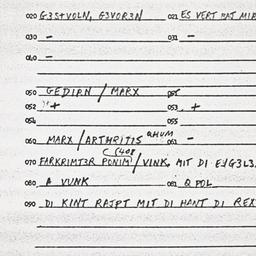 020 G3STVOLN, G3VOR3N 021 ES VERT MAT MIR
030 – 031 –
040 –
050 GEDIRN / MARX 051
052 + 053 +
054 055
060 MARX / ARTHRITIS AHUM 061 –
070 FARKRIMT3R PONIM / VINK. MIT DI
080 A VUNK 081 Q POL
090 DI KINT RAJPT MIT DI HANT DI REX